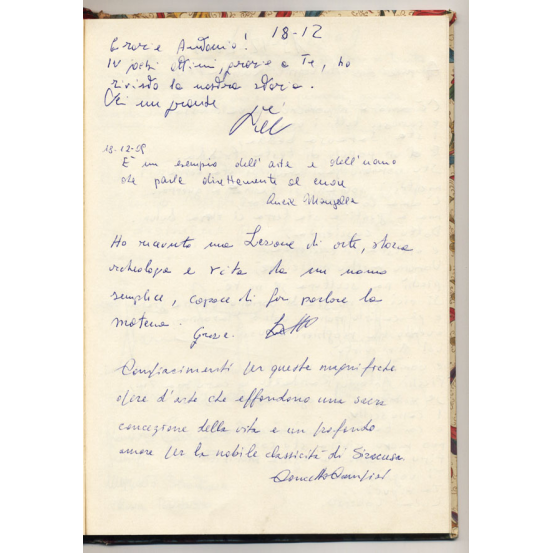 18-12
Grazie Antonio!
In pochi attimi, grazie a Te, ho
rivisto la nostra storia.
Sei un grande
18-12-09
È un esempio dell'arte e dell'uomo
che parla direttamente al cuore
Ho ricevuto una Lezione di arte, storia
archeologia e vita da un uomo
semplice, capace di far parlare la
materia.
Grazie.
Compiacimenti per queste magnifiche
opere d'arte che effondono una sacra
concezione della vita e un profondo
amore per la nobile classicità di Siracusa.